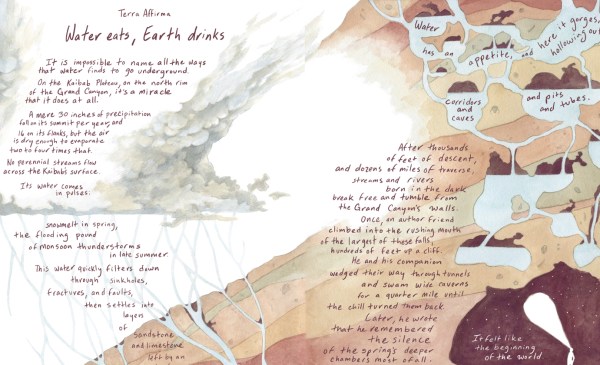 Terra Affirma
Water eats, Earth drinks
It is impossible to name all the ways
that water finds to go underground.
On the Kaibab Plateau, on the north rim
of the Grand Canyon, it's a miracle
that it does at all.
A mere 30 inches of precipitation
fall on its summit per year, and
16 on its flanks, but the air
is dry enough to evaporate
two to four times that.
No perennial streams flow
across the Kaibab's surface.
Its water comes
in pulses:
snowmelt in spring,
the flooding pound
of monsoon thunderstorms
in late summer.
This water quickly filters down
through sinkholes,
fractures, and faults,
then settles into
layers
of
sandstone
and limestone
left by an
Water
has an appetite, and here it gorges,
hollowing out
corridors
and
caves
and pits
and
tubes.
After thousands
of feet of descent,
and dozens of miles of traverse,
streams and rivers
born in the dark
break free and tumble from
the Grand Canyon's walls.
Once, an author friend
climbed into the rushing mouth
of the largest of those falls,
hundreds of feet up a cliff.
He and his companion
wedged their way through tunnels
and swam wide caverns
for a quarter mile until
the chill turned them back.
Later, he wrote
that he remembered
the silence
of the spring's deeper
chambers most of all.
It felt like
the beginning
of the world.